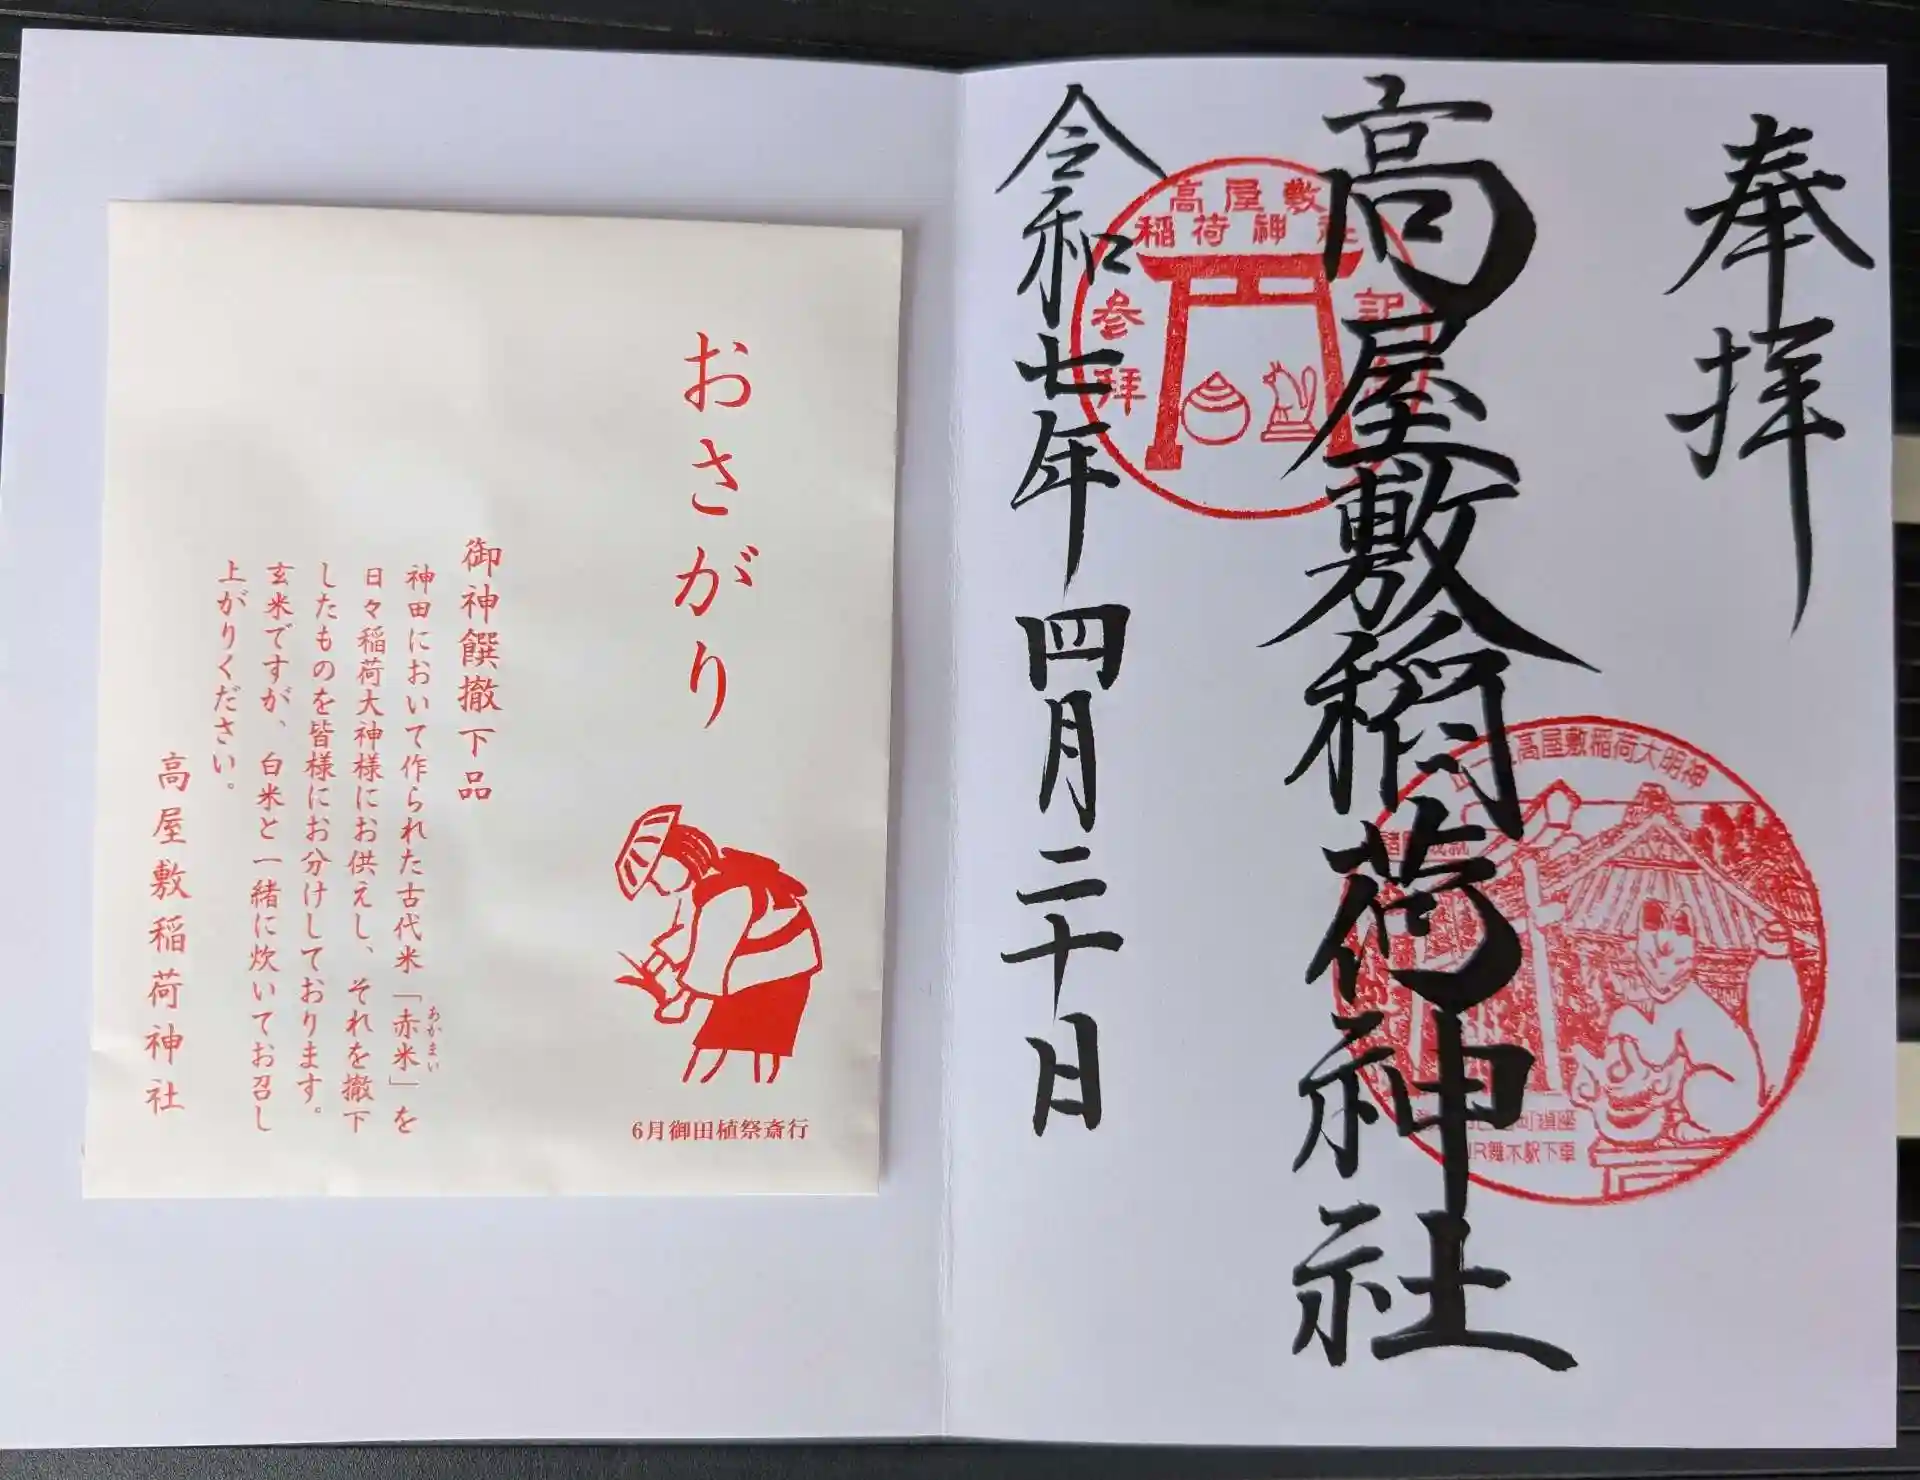 奉拝
高屋敷稲荷神社
令和七年四月二十日
高屋敷
稲荷神社
参拝
高屋敷稲荷大明神
町鎮座
JR舞木駅下車
おさがり
御神饌撤下品
神田において作られた古代米「赤米」を
あかまい
日々稲荷大神様にお供えし、それを撤下
したものを皆様にお分けしております。
玄米ですが、白米と一緒に炊いてお召し
上がりください。
高屋敷稲荷神社
6月御田植祭斎行